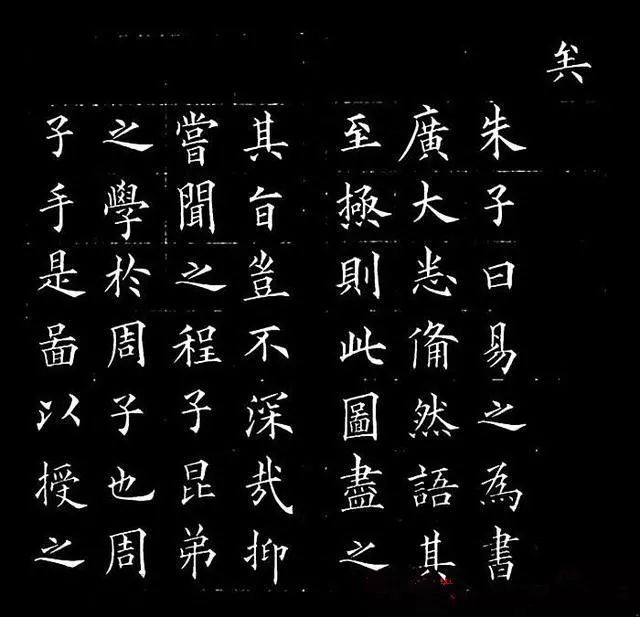 矣
朱子曰易之為書
廣大悉備然語其
至極則此圖盡之
其旨豈不深哉抑
嘗聞之程子昆弟
之學於周子也周
子手是啚以授之